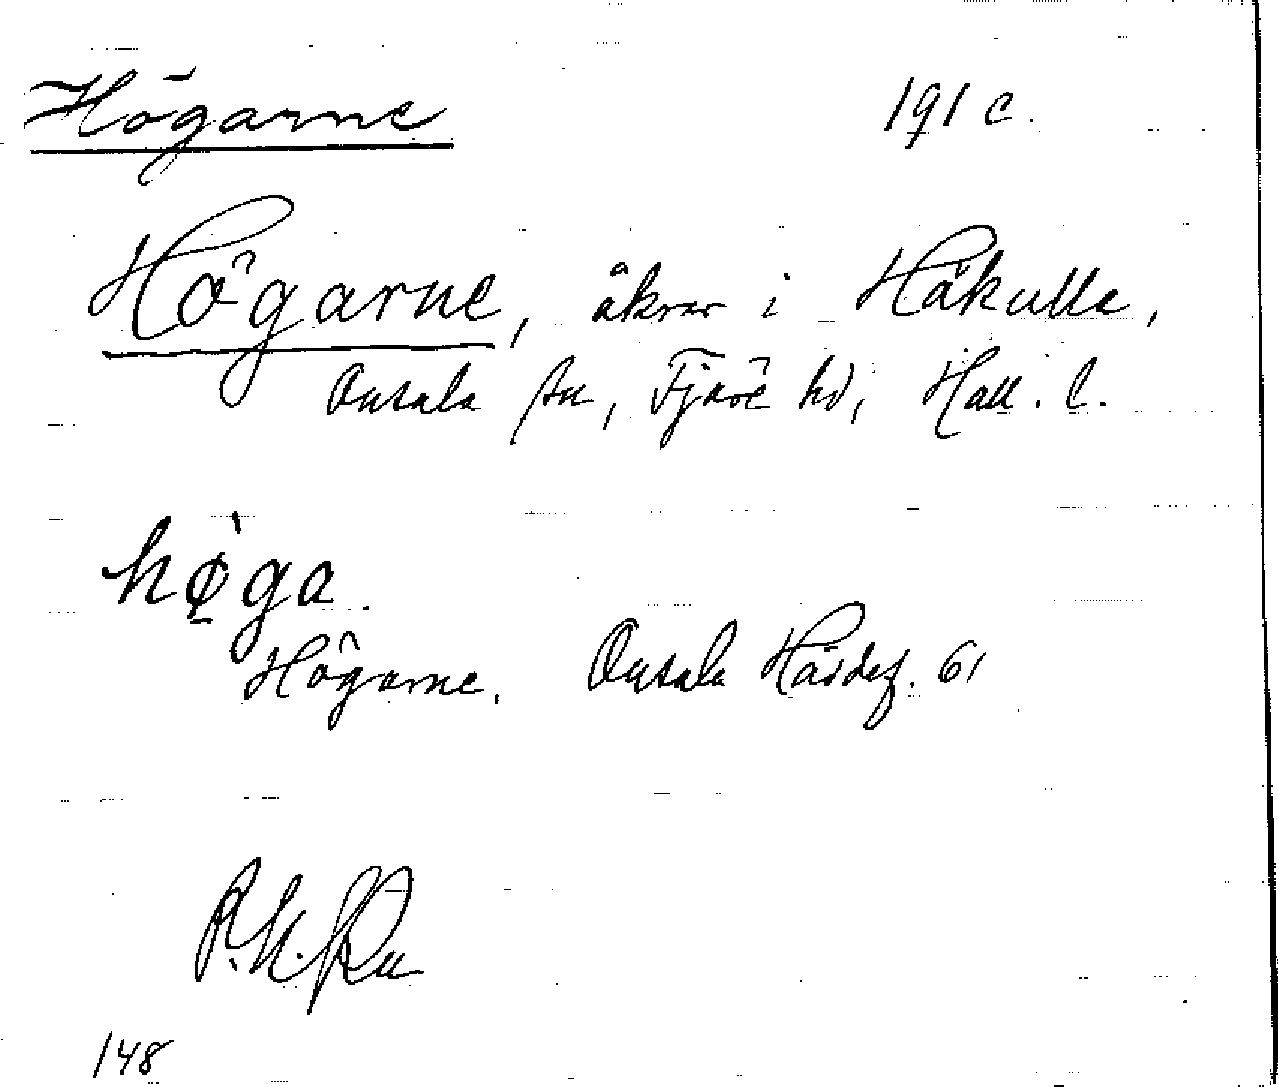 Högarne 191 c.
Högarne, åkrar i Håkulla,
Onsala sn, Fjäre hd, Hall. l.
hø̀ga.
Högarne. Onsala Hårdef. 61
148